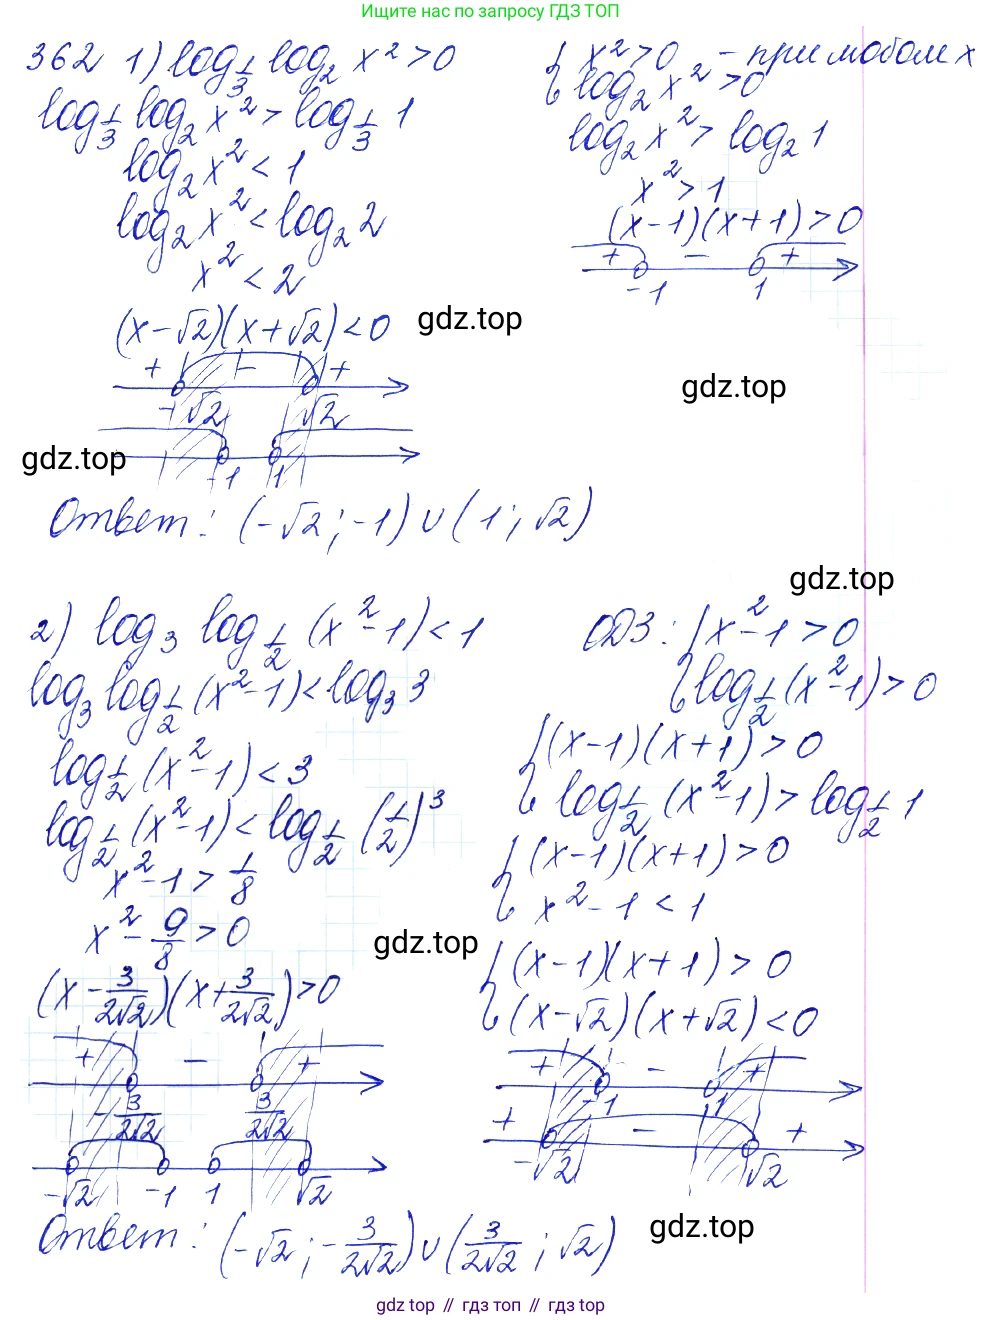 Ищите нас по запросу ГДЗ ТОП
362 1) log_{1/3} log_2 x² > 0
log_{1/3} log_2 x² > log_{1/3} 1
log_2 x² < 1
log_2 x² < log_2 2
x² < 2
(x-√2)(x+√2) < 0
+ - +
-√2 √2
-1 1
{ x² > 0 - при любом x
log_2 x² > 0
log_2 x² > log_2 1
x² > 1
(x-1)(x+1) > 0
+ - +
-1 1
gdz.top
gdz.top
gdz.top
Ответ: (-√2; -1) ∪ (1; √2)
gdz.top
2) log_3 log_{1/2} (x²-1) < 1
log_3 log_{1/2} (x²-1) < log_3 3
log_{1/2} (x²-1) < 3
log_{1/2} (x²-1) < log_{1/2} (1/2)³
x²-1 > 1/8
x² - 9/8 > 0
(x - 3/2√2)(x + 3/2√2) > 0
+ - +
-3/2√2 3/2√2
-√2 -1 1 √2
ОДЗ: { x²-1 > 0
log_{1/2} (x²-1) > 0
{ (x-1)(x+1) > 0
log_{1/2} (x²-1) > log_{1/2} 1
{ (x-1)(x+1) > 0
x²-1 < 1
gdz.top
{ (x-1)(x+1) > 0
(x-√2)(x+√2) < 0
+ - +
-1 1
+ - +
-√2 √2
Ответ: (-√2; -3/2√2) ∪ (3/2√2; √2)
gdz.top
gdz top // гдз топ // gdz top